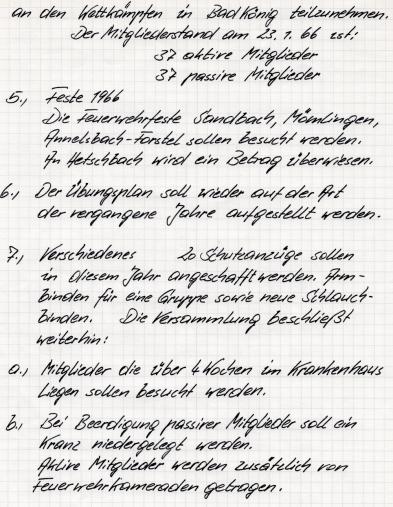 an den Wettkämpfen in Bad König teilzunehmen.
Der Mitgliederstand am 23.1.66 ist:
37 aktive Mitglieder
37 passive Mitglieder
5., Feste 1966
Die Feuerwehrfeste Sandbach, Mömlingen,
Annelsbach-Forstel sollen besucht werden.
An Hetschbach wird ein Betrag überwiesen.
6., Der Übungsplan soll wieder auf der Art
der vergangene Jahre aufgestellt werden.
7., Verschiedenes 20 Schutzanzüge sollen
in diesem Jahr angeschafft werden. Arm-
binden für eine Gruppe sowie neue Schlauch-
binden. Die Versammlung beschließt
weiterhin:
a., Mitglieder die über 4 Wochen im Krankenhaus
Liegen sollen besucht werden.
b., Bei Beerdigung passiver Mitglieder soll ein
Kranz niedergelegt werden.
Aktive Mitglieder werden zusätzlich von
Feuerwehrkameraden getragen.